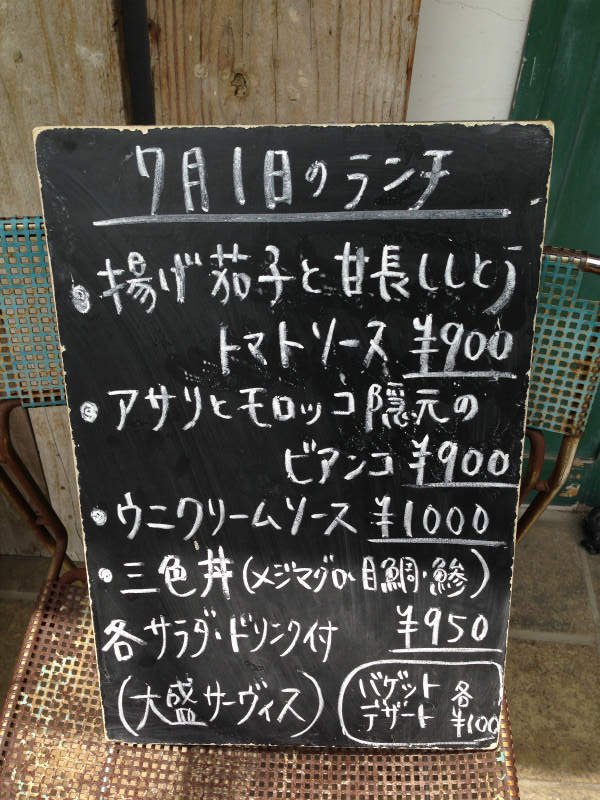 7月1日のランチ
・揚げ茄子と甘長ししとう
トマトソース ¥900
・アサリとモロッコ隠元の
ビアンコ ¥900
・ウニクリームソース ¥1000
・三色丼(メジマグロ・目鯛・鯵)
¥950
各サラダ・ドリンク付
(大盛サーヴィス)
バゲット
デザート 各¥100